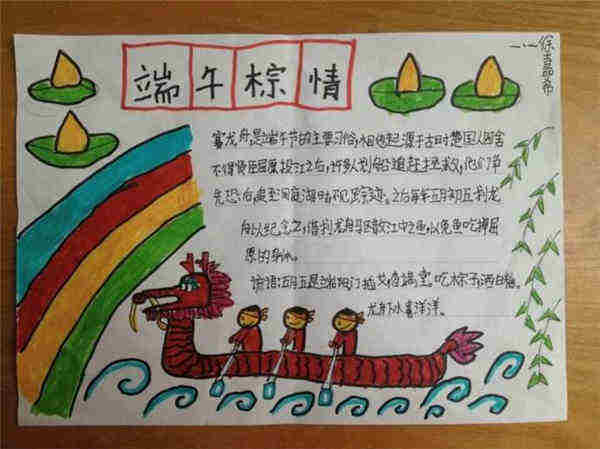 端午棕情
赛龙舟,是端午节的主要习俗,相传起源于古时楚国人因舍
不得贤臣屈原投江之后,许多人划船追赶拯救,他们争
先恐后,追至洞庭湖时不见踪迹。之后每年五月初五划龙
舟以纪念之,借划龙舟驱散江中之鱼,以免鱼吃掉屈
原的身体。
谚语:五月五是端阳,门插艾,香满堂。吃棕子,洒白糖。
龙舟下水喜洋洋。